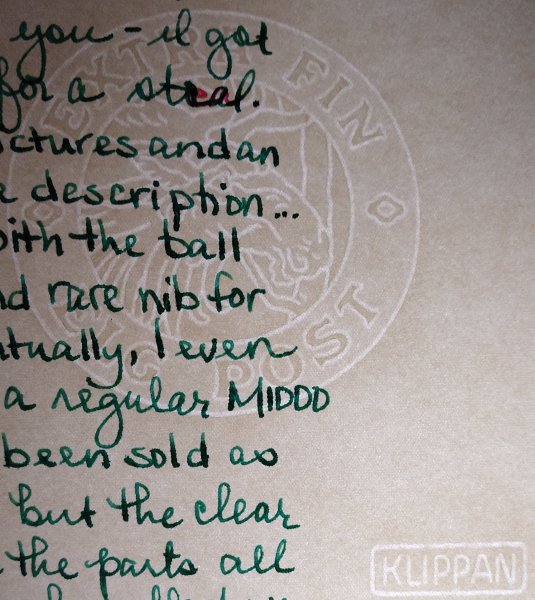 you - il got
for a steal.
ctures and an
description...
with the ball
rare nib for
tually, I even
a regular MIDDD
been sold as
but the clear
the parts all
EXTRA FIN
POST
KLIPPAN